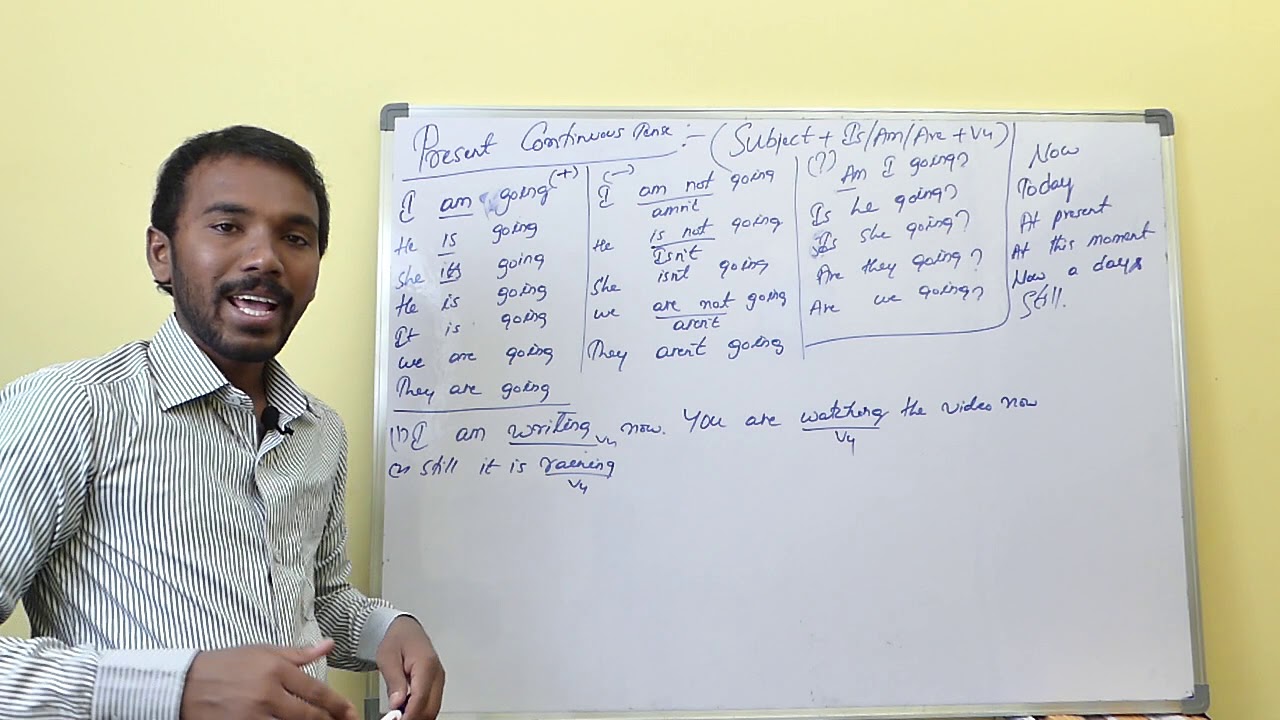 Present Continuous Tense :- (Subject + Is/Am/Are + V4)
(+)
I am going
He is going
She is going
He is going
It is going
we are going
They are going
(-)
I am not going
amn't
He is not going
Isn't
She isn't going
we are not going
aren't
They aren't going
(?) Am I going?
Is he going?
Is she going?
Are they going?
Are we going?
Now
Today
At present
At this moment
Now a days
Still.
(1) I am writing now. You are watching the video now
V4 V4
(2) still it is raening
V4